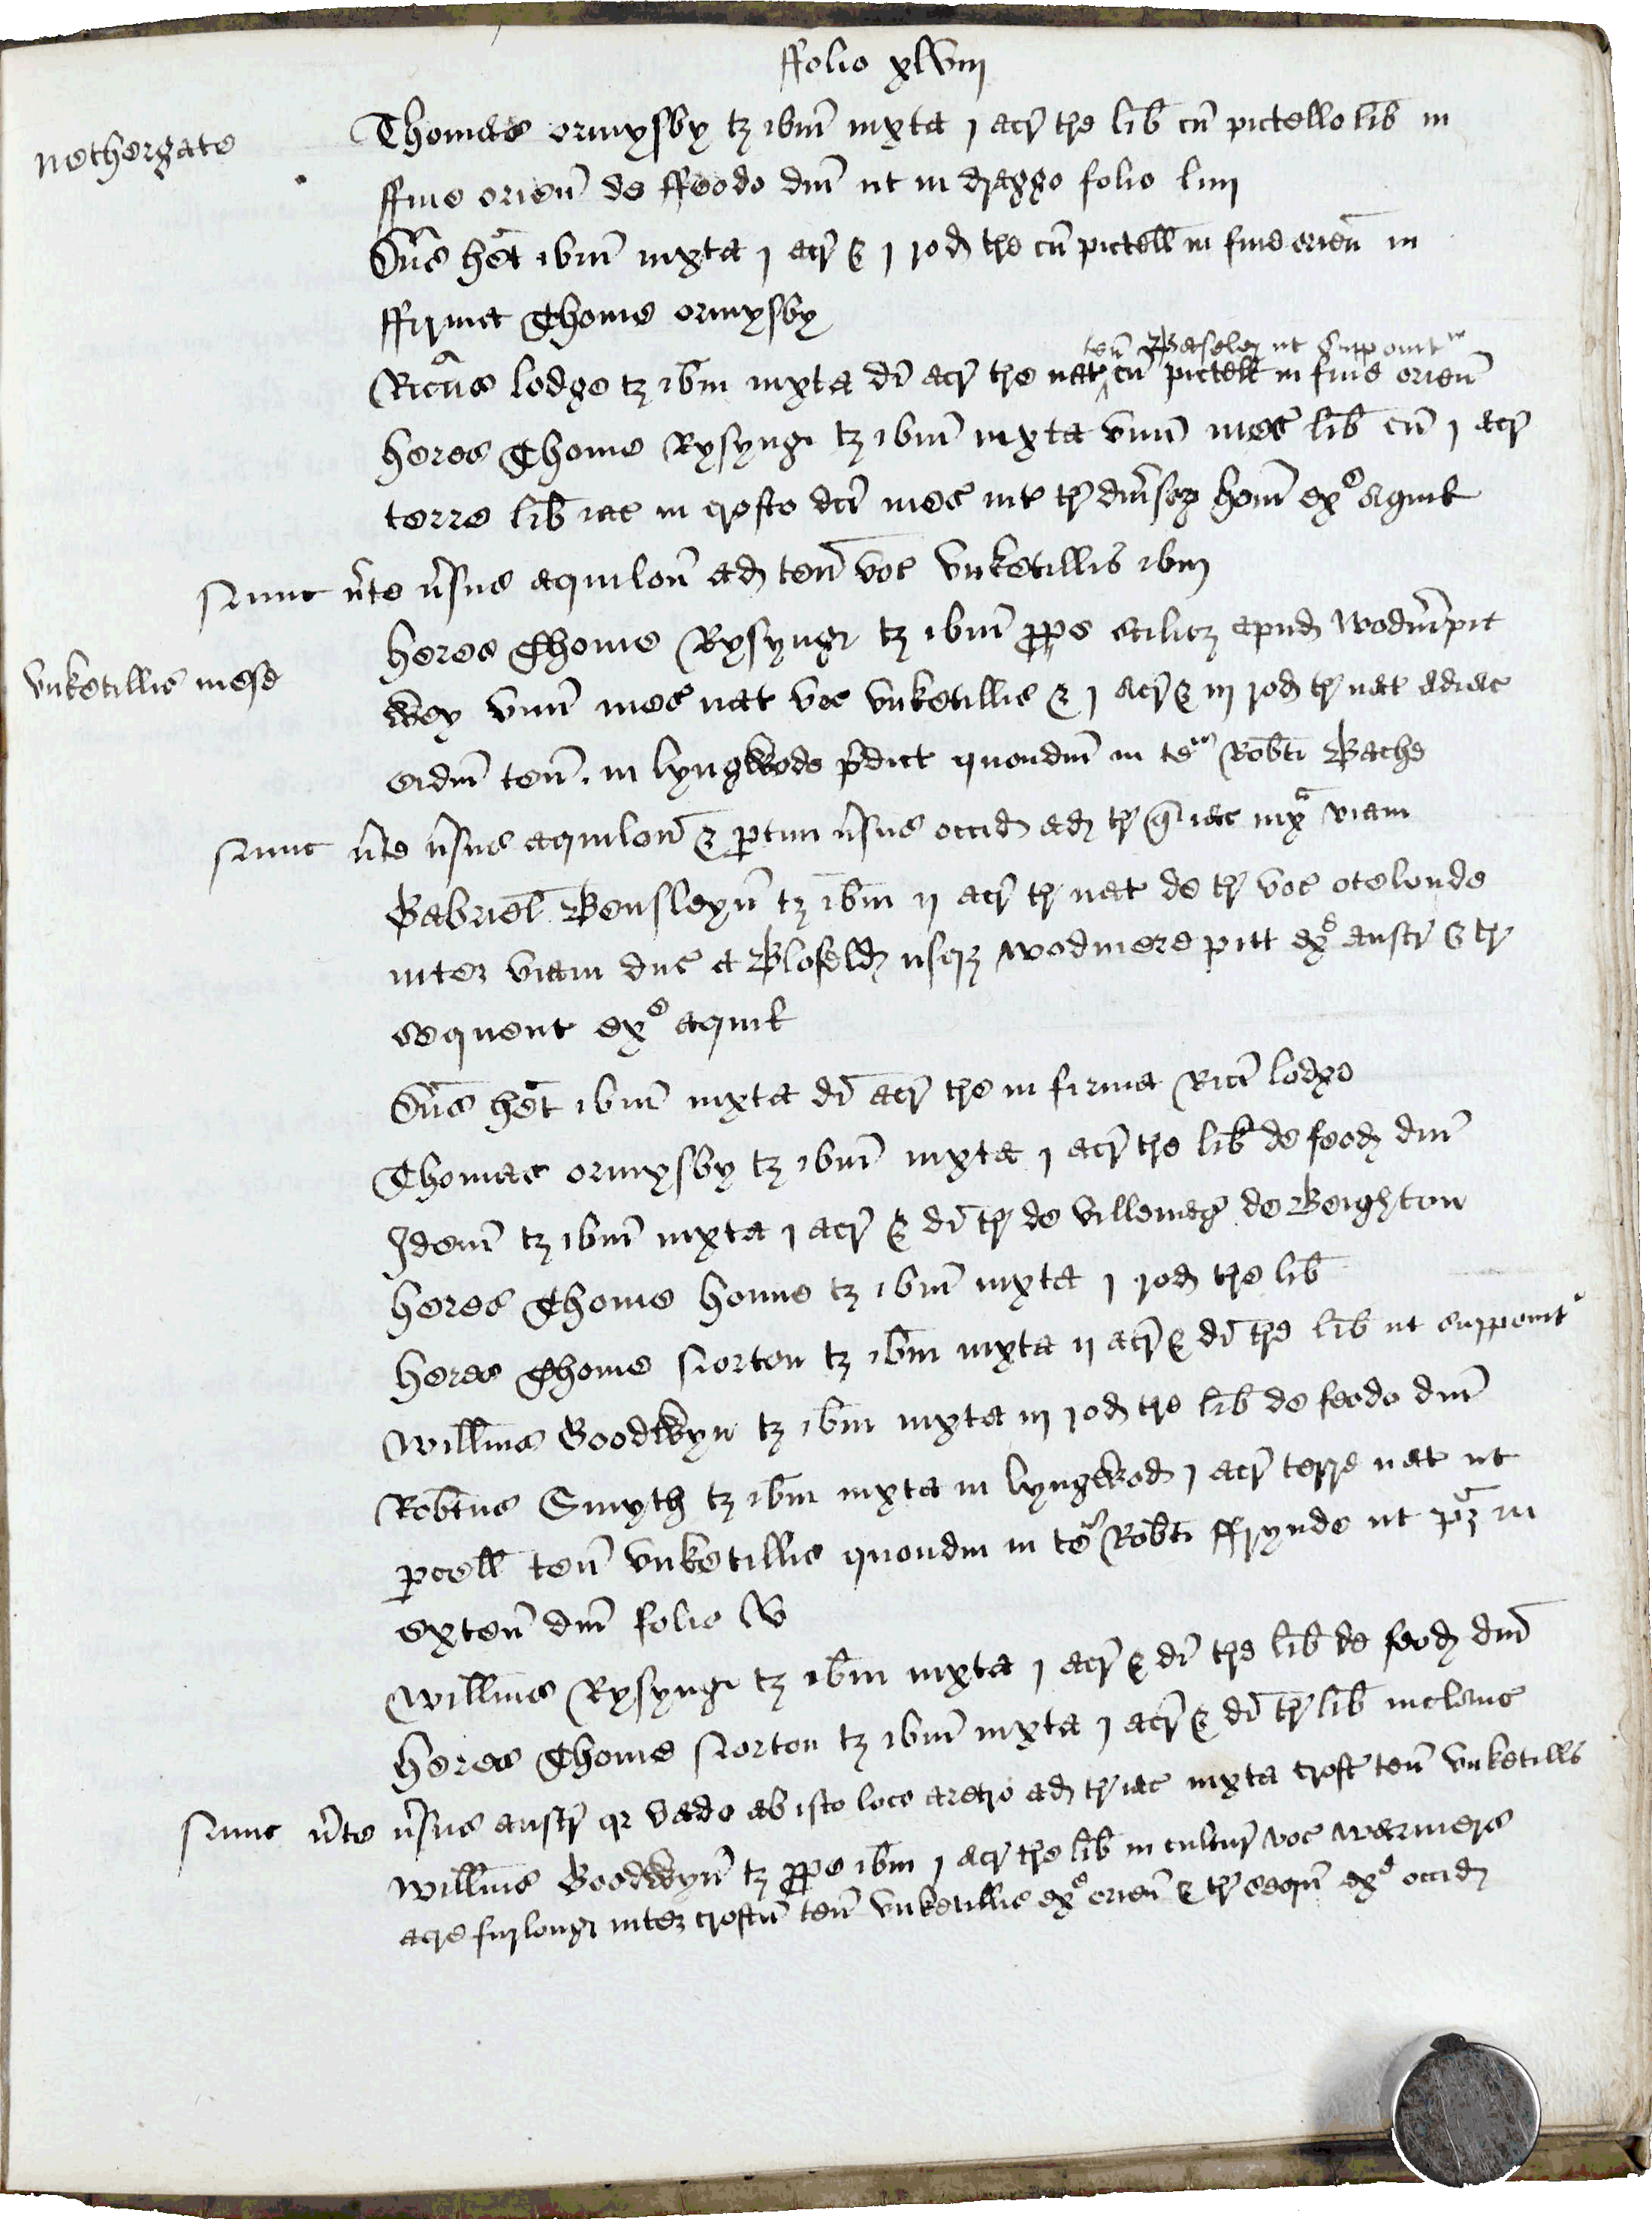 ffolio xlviij
nethergate
Thomas ormysby tz ibm̄ iuxta j acr̄ tre lib̄ cū pictello lib̄ in
ffine orien̄ de ffeodo dn̄i ut in draggo folio liiij
Dn̄s het̄ ibm̄ iuxta j acr̄ & j rod tre cū pictell̄ in fine orien̄ in
ffirma Thome ormysby
ten̄ Baseley ut supponit~
Ric̄us lodge tz ibm̄ iuxta di acr̄ tre nat cū pictell̄ in fine orien̄
heres Thome Rysyngꝭ tz ibm̄ iuxta vnū mes̄ lib̄ cū j acr̄
terre lib̄ iac in crofto dc̄i mes int tr̄ diūsoꝝ hom̄ exᵉ aquil
Nunc ūto ūsus aquilon̄ ad ten̄ voc vnketillis ibm
heres Thome Rysyngꝭ tz ibm̄ ꝓpe apud wodm̄epit
vnketillis mese
wey vnū mes nat voc vnketillis & j acr̄ & iij rod tr̄ nat adiac
eidm̄ ten̄ in lyngwode p̄dict quondm̄ in teʳᵃ Rob̄ti Bache
Nunc ūto ūsus aquilon̄ & ꝑtim ūsus occid ad tr̄ qᵃ iac iuxᵃ viam
Gabriel̄ Bensleyn̄ tz ibm̄ ij acr̄ tr̄ nat de tr̄ voc otelonde
inter viam duc a Blofeld usqꝫ wodmere pitt exᵉ austr̄ & tr̄
sequent exᵉ aquil
Dn̄s het̄ ibm̄ iuxta di acr̄ tre in firma Ric̄i lodge
Thomas ormysby tz ibm̄ iuxta j acr̄ tre lib̄ de feod dn̄i
Idem̄ tz ibm̄ iuxta j acr̄ & di tr̄ de villenaḡ de Beighton
heres Thome honne tz ibm̄ iuxta j rod tre lib̄
heres Thome Norton tz ibm̄ iuxta ij acr̄ & di tre lib̄ ut supponit~
Willm̄s Goodwyn tz ibm̄ iuxta iij rod tre lib̄ de feodo dn̄i
Rob̄tus Smyth tz ibm̄ iuxta in lyngwod j acr̄ terre nat ut
ꝑcell̄ ten̄ vnketillis quondm in teʳᵃ Rob̄ti ffrynde ut pꝫ in
exten̄ dn̄i folio
Willm̄s Rysyngꝭ tz ibm̄ iuxta j acr̄ & di tre lib̄ de feod dn̄i
heres Thome Norton tz ibm̄ iuxta j acr̄ & di tr̄ lib̄ inclaus
Nunc ūto ūsus austr̄ qꝛ vado ab isto loco aretro ad tr̄ iac iuxta croft ten̄ vnketills
Willm̄s Goodwyn̄ tz ꝓpe ibm̄ j acr̄ tre lib̄ in cultur̄ voc warmers
acre furlongꝭ inter croftū ten̄ vnketillis exᵉ orien̄ & tr̄ sequn̄ exᵉ occid